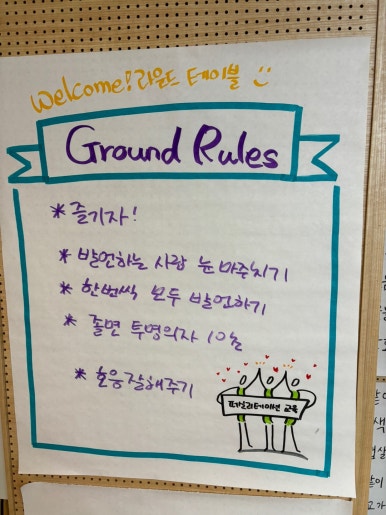 Welcome! 라운드 테이블
Ground Rules
* 즐기자!
* 발언하는 사람 눈 마주치기
* 한번씩 모두 발언하기
* 졸면 투명의자 10초
* 호응 잘해주기
퍼실리테이션 교육